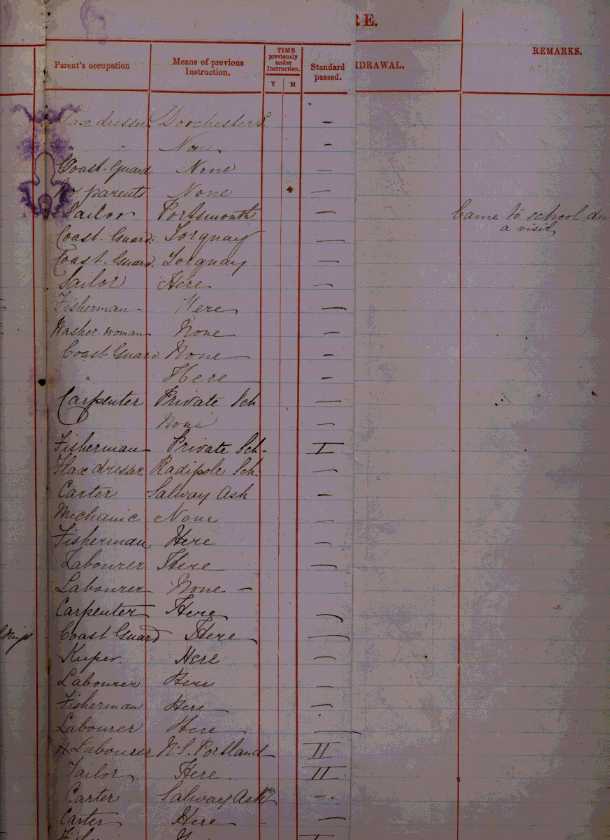 RE.
Parent's occupation Means of previous Instruction. TIME previously under Instruction. Y M Standard passed. DRAWAL. REMARKS.
dresser Dorchester —
None —
Coast-Guard None —
parents None —
Sailor Portsmouth — Came to school
a visit
Coast-Guard Torquay —
Coast-Guard Torquay —
Sailor Here —
Fisherman Here —
Washer woman None —
Coast Guard None —
Here —
Carpenter Private Sch —
None —
Fisherman Private Sch. I
Flax dresser Radipole Sch —
Carter Salway Ash —
Mechanic None —
Fisherman Here —
Labourer Here —
Labourer None —
Carpenter Here —
Coast Guard Here —
Keeper Here —
Labourer Here —
Fisherman Here —
Labourer Here —
Labourer N.S. Portland II
Tailor Here III
Carter Salway Ash —
Carter Here —